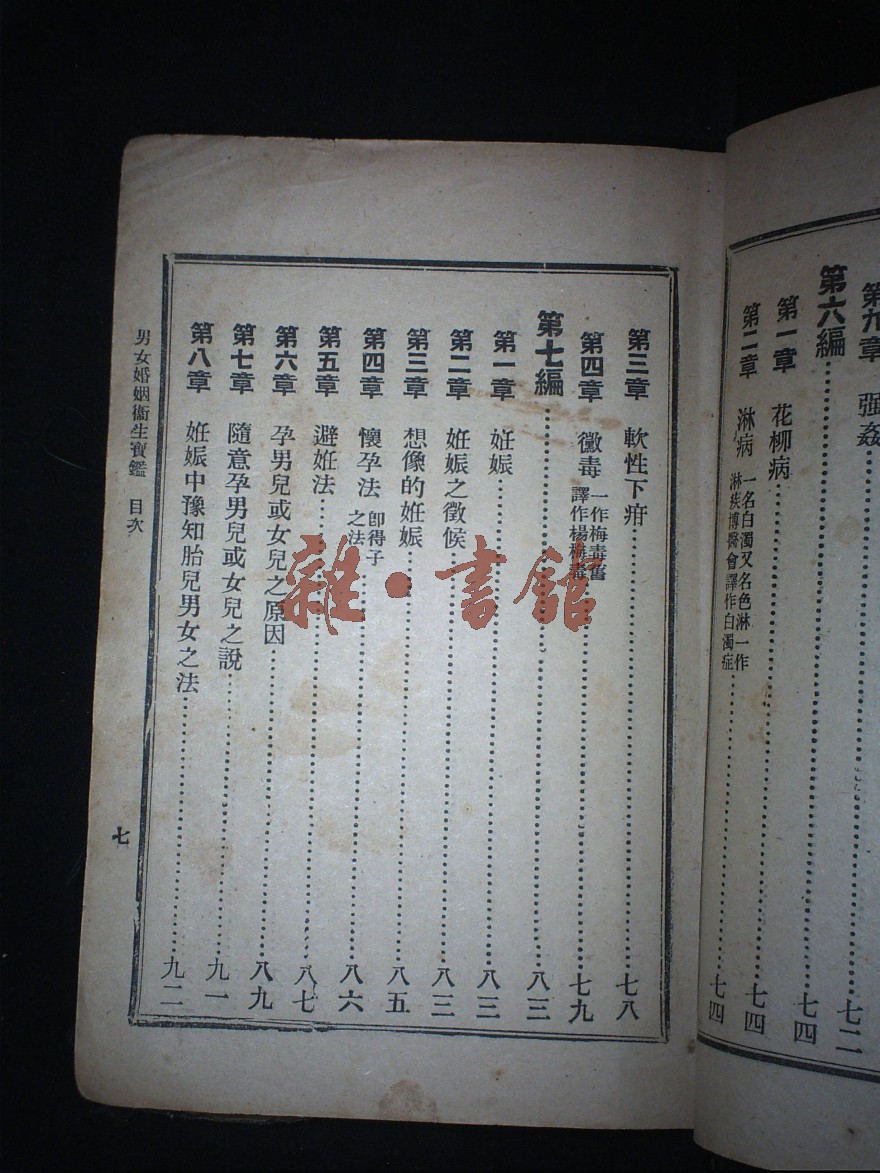 第九章 强姦……七二
第六編……七四
第一章 花柳病……七四
第二章 淋病 一名白濁又名色淋一作淋疾博醫會譯作白濁症……七四
第三章 軟性下疳……七八
第四章 黴毒 一作梅毒舊譯作楊梅毒……七九
第七編……八三
第一章 妊娠……八三
第二章 妊娠之徵候……八三
第三章 想像的妊娠……八五
第四章 懷孕法 卽得子之法……八六
第五章 避妊法……八七
第六章 孕男兒或女兒之原因……八九
第七章 隨意孕男兒或女兒之說……九一
第八章 妊娠中豫知胎兒男女之法……九二
男女婚姻衞生寶鑑 目次
七
雜·書館